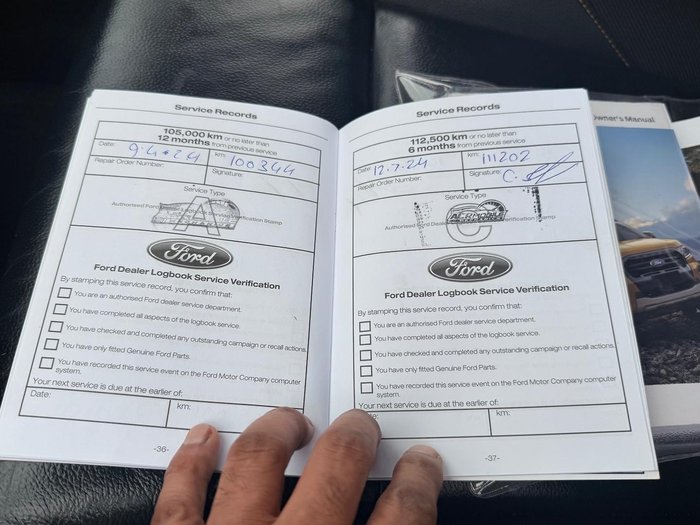 Service Records
105,000 km or no later than
12 months from previous service
Date: 9.4.24 km: 100344
Repair Order Number: Signature:
Service Type
A
Ford
Ford Dealer Logbook Service Verification
By stamping this service record, you confirm that:
You are an authorised Ford dealer service department.
You have completed all aspects of the logbook service.
You have checked and completed any outstanding campaign or recall actions.
You have only fitted Genuine Ford Parts.
You have recorded this service event on the Ford Motor Company computer
system.
Your next service is due at the earlier of:
Date: km:
-36-
Service Records
112,500 km or no later than
6 months from previous service
Date 12.7.24 km: 111202
Repair Order Number: Signature: C.
Service Type
C
Ford
Ford Dealer Logbook Service Verification
By stamping this service record, you confirm that:
You are an authorised Ford dealer service department.
You have completed all aspects of the logbook service.
You have checked and completed any outstanding campaign or recall actions.
You have only fitted Genuine Ford Parts.
You have recorded this service event on the Ford Motor Company computer
system.
Your next service is due at the earlier of:
km:
-37-
Owner's Manual